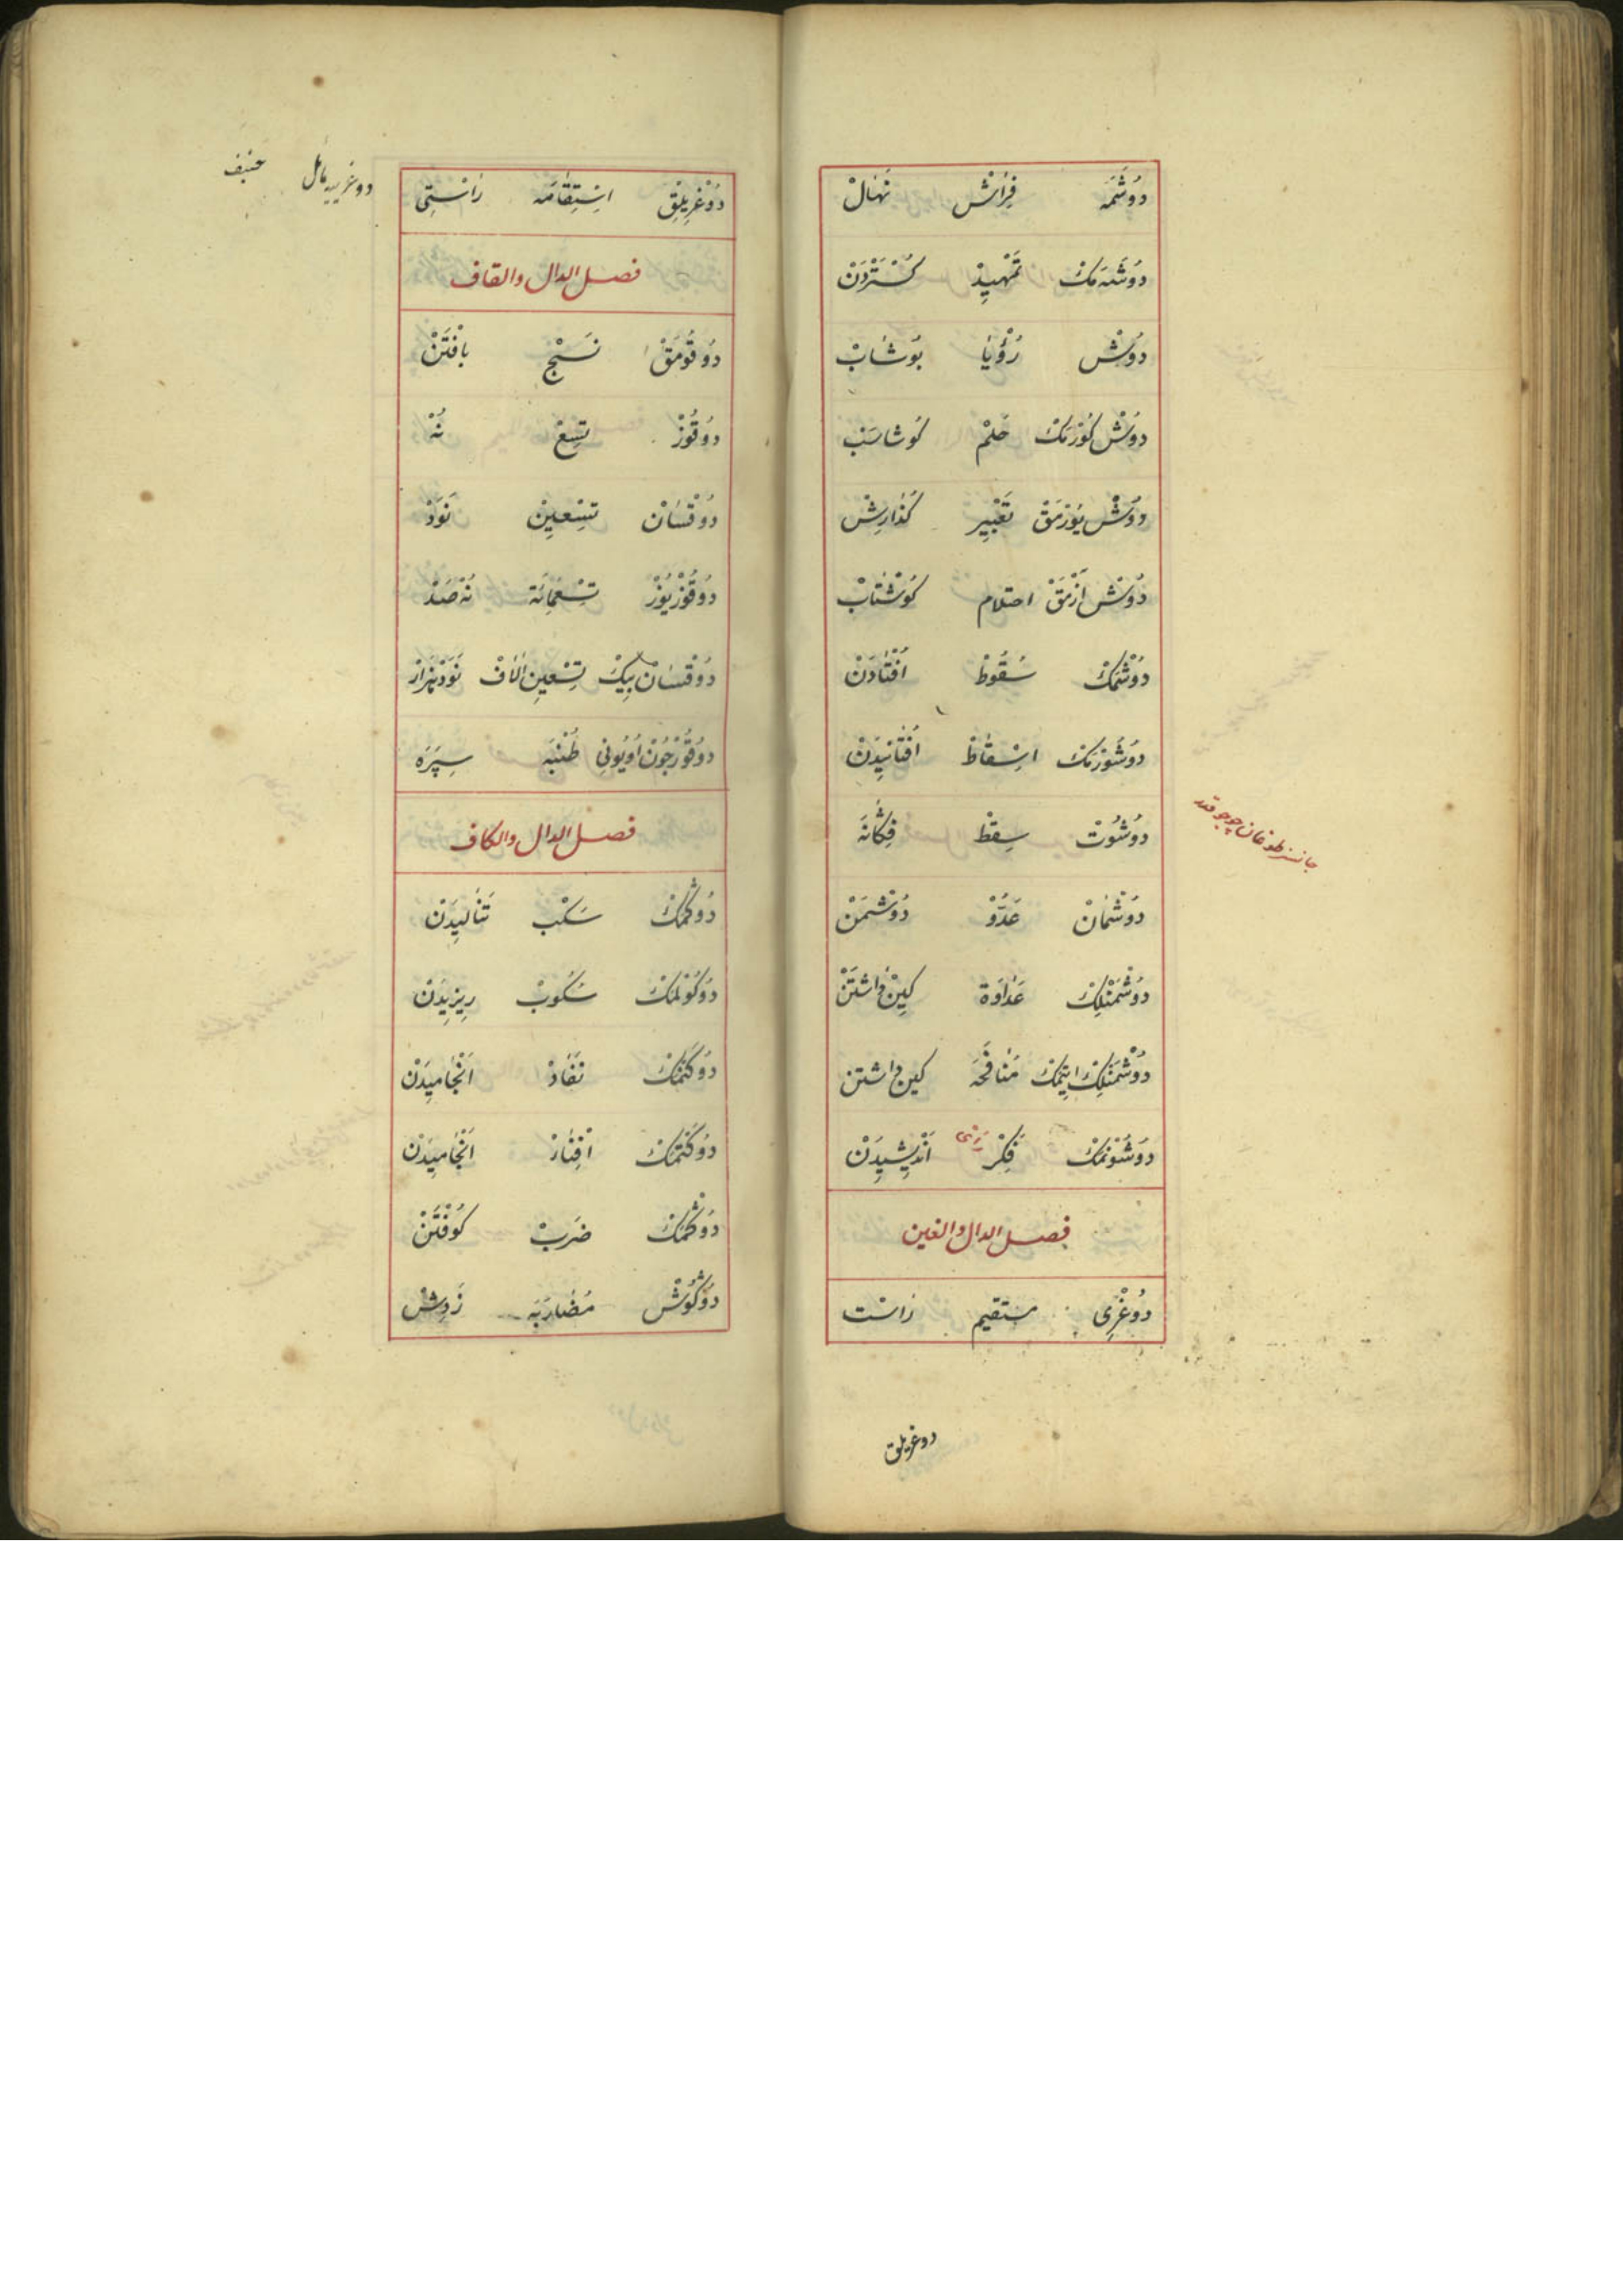 دُوشَمَه فِرَاشْ نَهَالْ
دُوشَمَه‌مَكْ تَمْهِيدْ كُسْتَرْدَنْ
دُوشْ رُؤْيَا بُوشَابْ
دُوشْ كُورْمَكْ حُلْمْ كُوشَاسَبْ
دُوشْ يُورْمَقْ تَعْبِيرْ كُذَارِشْ
دُوشْ اَزْمَقْ احتلام كُوشْتَابْ
دُوشْمَكْ سُقُوطْ اُفْتَادَنْ
دُوشُورْمَكْ اِسْقَاطْ اُفْتَانِيدَنْ
دُوشُوتْ سِقْطْ فِكَانَه
جانسز طوغان چوجوقدر
دُوشْمَانْ عَدُوّْ دُوشْمَنْ
دُوشْمَنْلِكْ عَدَاوَة كِينْ دَاشْتَنْ
دُوشْمَنْلِكْ اِيتْمَكْ مُنَافَحَه كين داشتن
دُوشُونْمَكْ فِكْرْ رَأْى اَنْدِيشِيدَنْ
فصل الدال والغين
دُوغْرِى مستقيم رَاسْت
دوغريلق
دُوغْرِيلِقْ اِسْتِقَامَه رَاسْتِى
دوغرييه مائل حنيف
فصل الدال والقاف
دُوقُومَقْ نَسْجْ بَافْتَنْ
دُوقُوزْ تِسْعْ نُهْ
دُوقْسَانْ تِسْعِينْ نَوَدْ
دُوقُوزْيُوزْ تِسْعُمِائَة نُهْ صَدْ
دُوقْسَانْ بِيكْ تِسْعِين اٰلَافْ نَوَدْ هَزَارْ
دُوقُوزْجُونْ اُويُونِى طُنْبَه سِپَرَه
فصل الدال والكاف
دُوكْمَكْ سَكْبْ تَنَالِيدَنْ
دُوكُولْمَكْ سُكُوبْ رِيزِيدَنْ
دُوكَنْمَكْ نَفَادْ اَنْجَامِيدَنْ
دُوكَتْمَكْ اِفْنَاءْ اَنْجَامِيدَنْ
دُوكْمَكْ ضَرَبْ كُوفْتَنْ
دُوكُوشْ مُضَارَبَه زَدِشْ